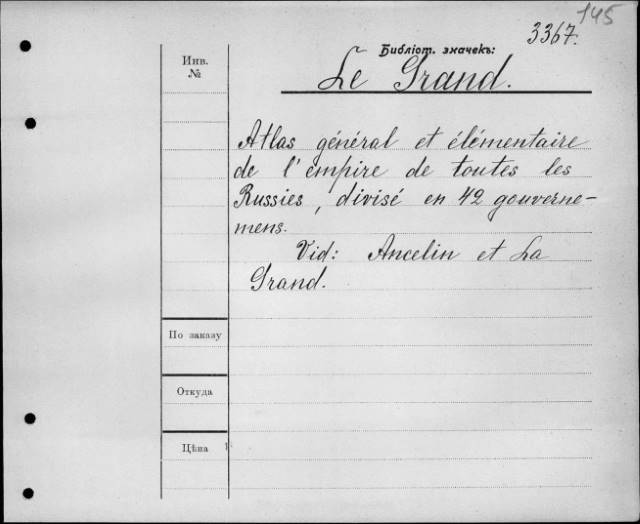 145
3367.
Библіот. значекъ:
Инв.
№
Le Grand.
Atlas général et élémentaire
de l'empire de toutes les
Russies, divisé en 42 gouverne-
mens.
Vid: Ancelin et La
Grand.
По заказу
Откуда
Цѣна